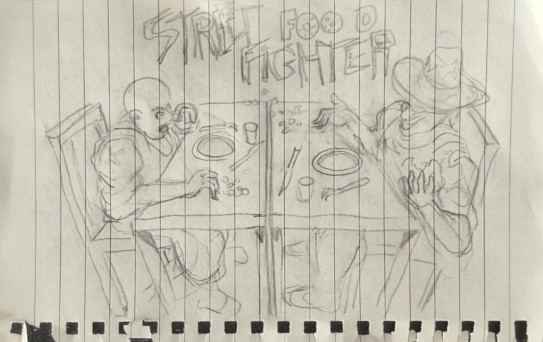 STREET FOOD
FIGHTER